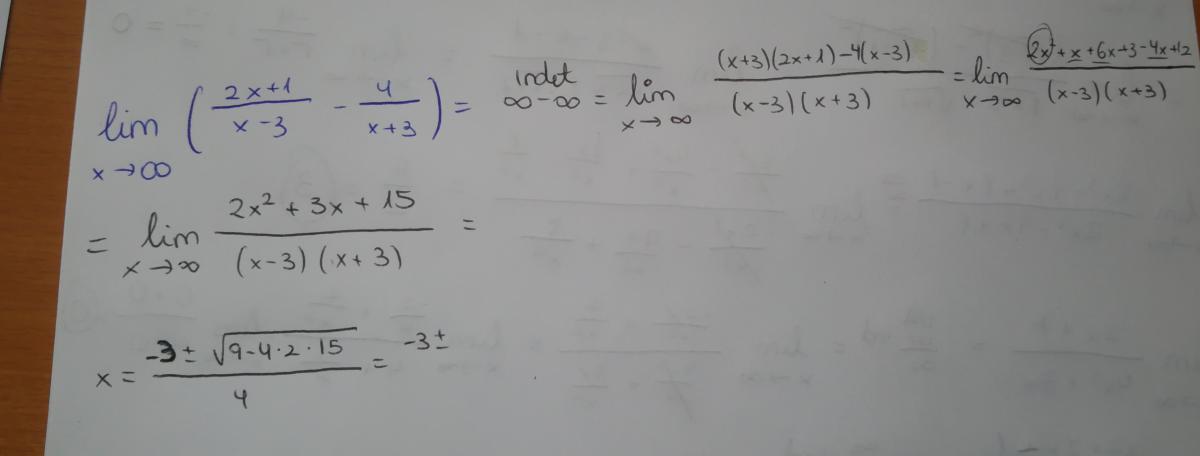 lim x→∞ ( (2x+1)/(x-3) - 4/(x+3) ) = indet ∞-∞ = lim x→∞ ((x+3)(2x+1)-4(x-3))/((x-3)(x+3)) = lim x→∞ (2x²+x+6x+3-4x+12)/((x-3)(x+3))
= lim x→∞ (2x²+3x+15)/((x-3)(x+3)) =
x = (-3±√(9-4·2·15))/4 = -3±